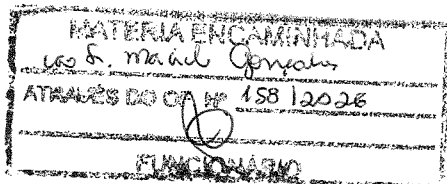 MATERIA ENCAMINHADA
ao Sr. Maciel Gonçalves
ATRAVÉS DO OF Nº 158 / 2026
FUNCIONÁRIO